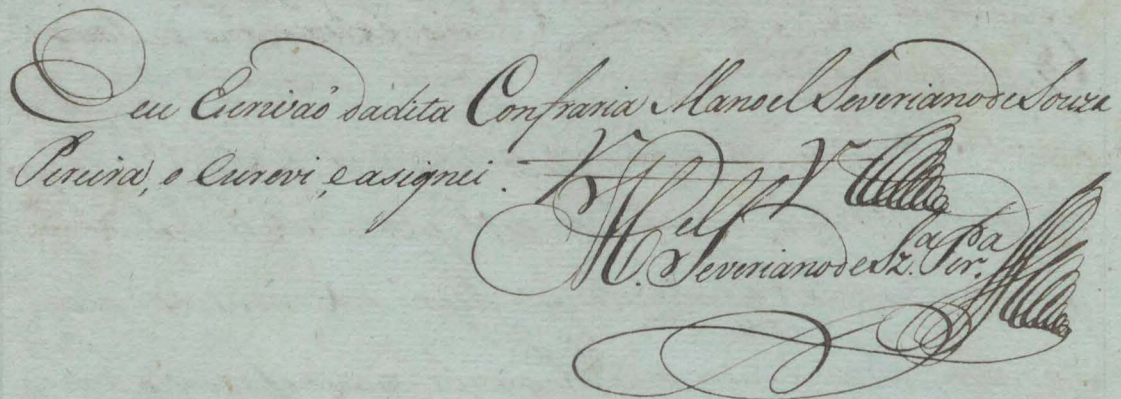 E eu Escrivaõ dadita Confraria Manoel Severiano de Souza
Pereira, o Escrevi, e asignei.
M.el Severiano de Sz.a Per.a